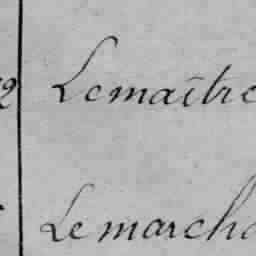 2 Lemaître
Le marcha